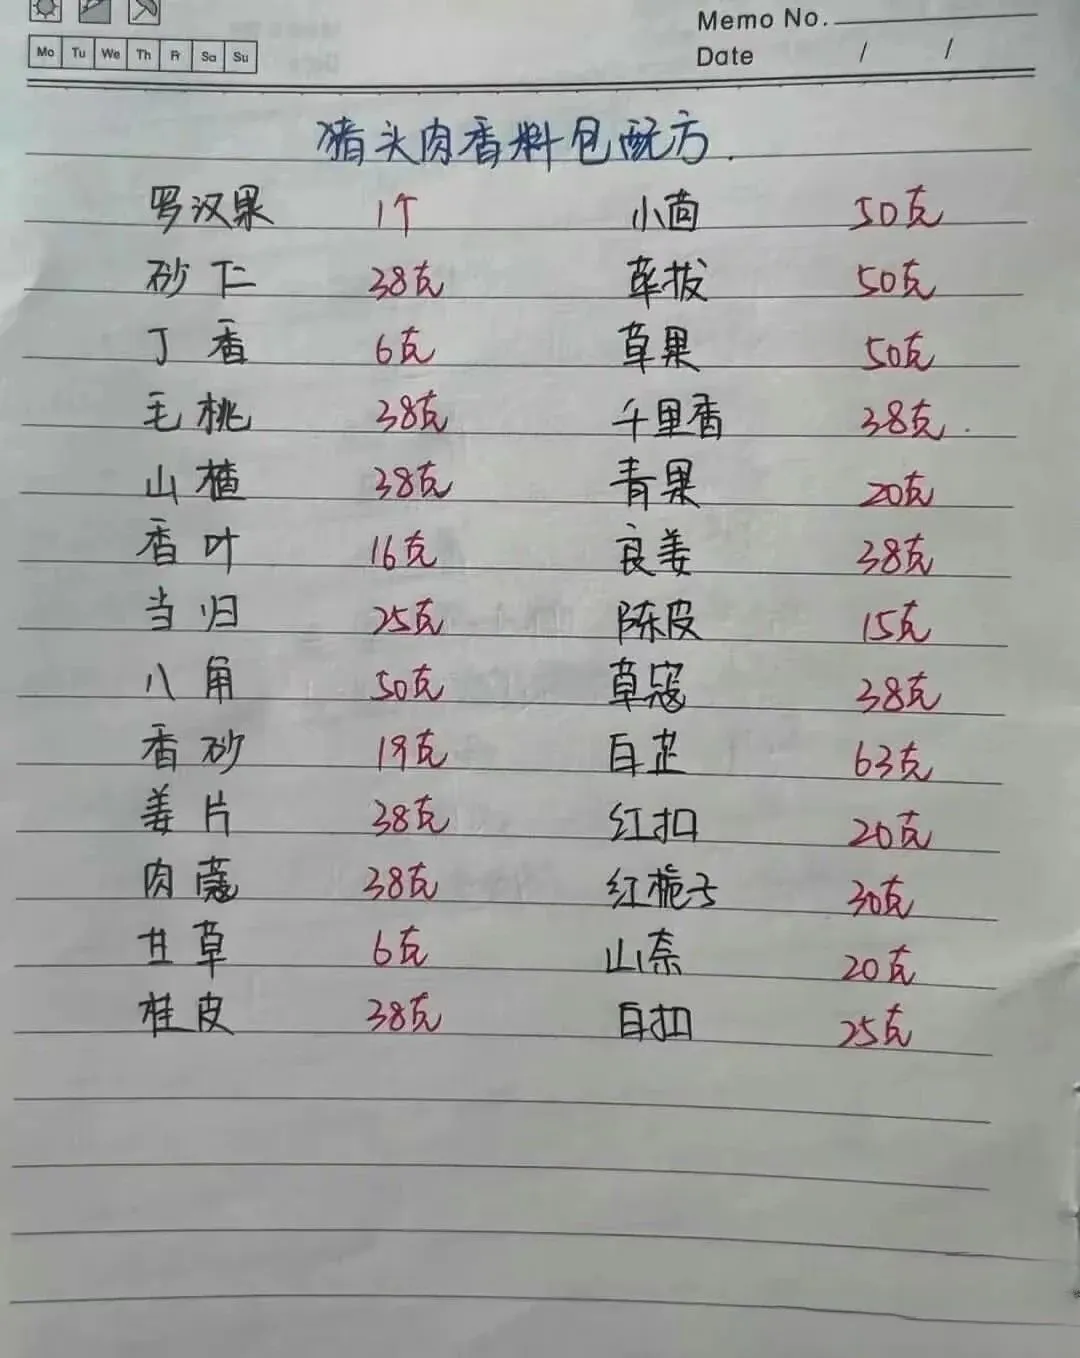 Memo No.
Mo Tu We Th Fr Sa Su
Date / /
猪头肉香料包配方.
罗汉果 1个 小茴 50克
砂仁 38克 荜拔 50克
丁香 6克 草果 50克
毛桃 38克 千里香 38克.
山楂 38克 青果 20克
香叶 16克 良姜 38克
当归 25克 陈皮 15克
八角 50克 草寇 38克
香砂 19克 白芷 63克
姜片 38克 红扣 20克
肉蔻 38克 红栀子 30克
甘草 6克 山奈 20克
桂皮 38克 白扣 25克